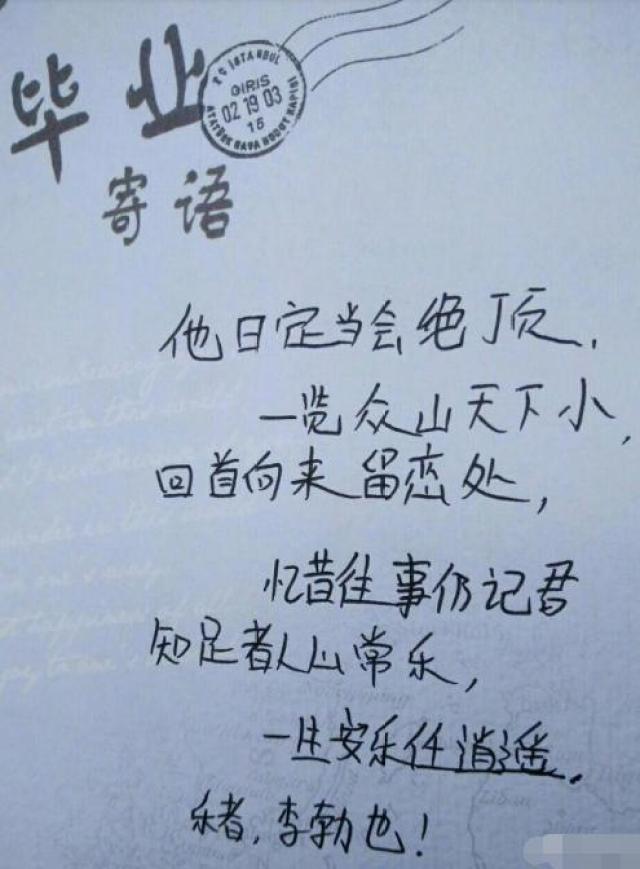 毕业
PC İSTANBUL
GİRİS
02 19 03
15
ATATÜRK HAVA HUDUT KAPISI
寄语
他日定当会绝顶,
一览众山天下小,
回首向来留恋处,
忆昔往事仍记君
知足者人山常乐,
一生安乐任逍遥.
乐者,李勃也!
Liban